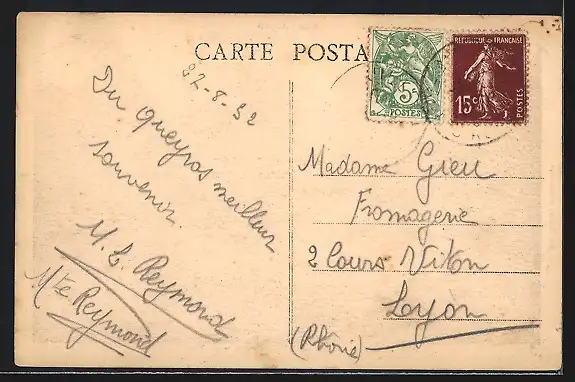 CARTE POSTA
RÉPUBLIQUE FRANÇAISE
15c
POSTES
5c
POSTES
22-8-32
Du Queyras meilleur
souvenir
M. L. Reymond
Mte Reymond
Madame Grieu
Fromagerie
2 Cours Vitton
Lyon
(Rhône)